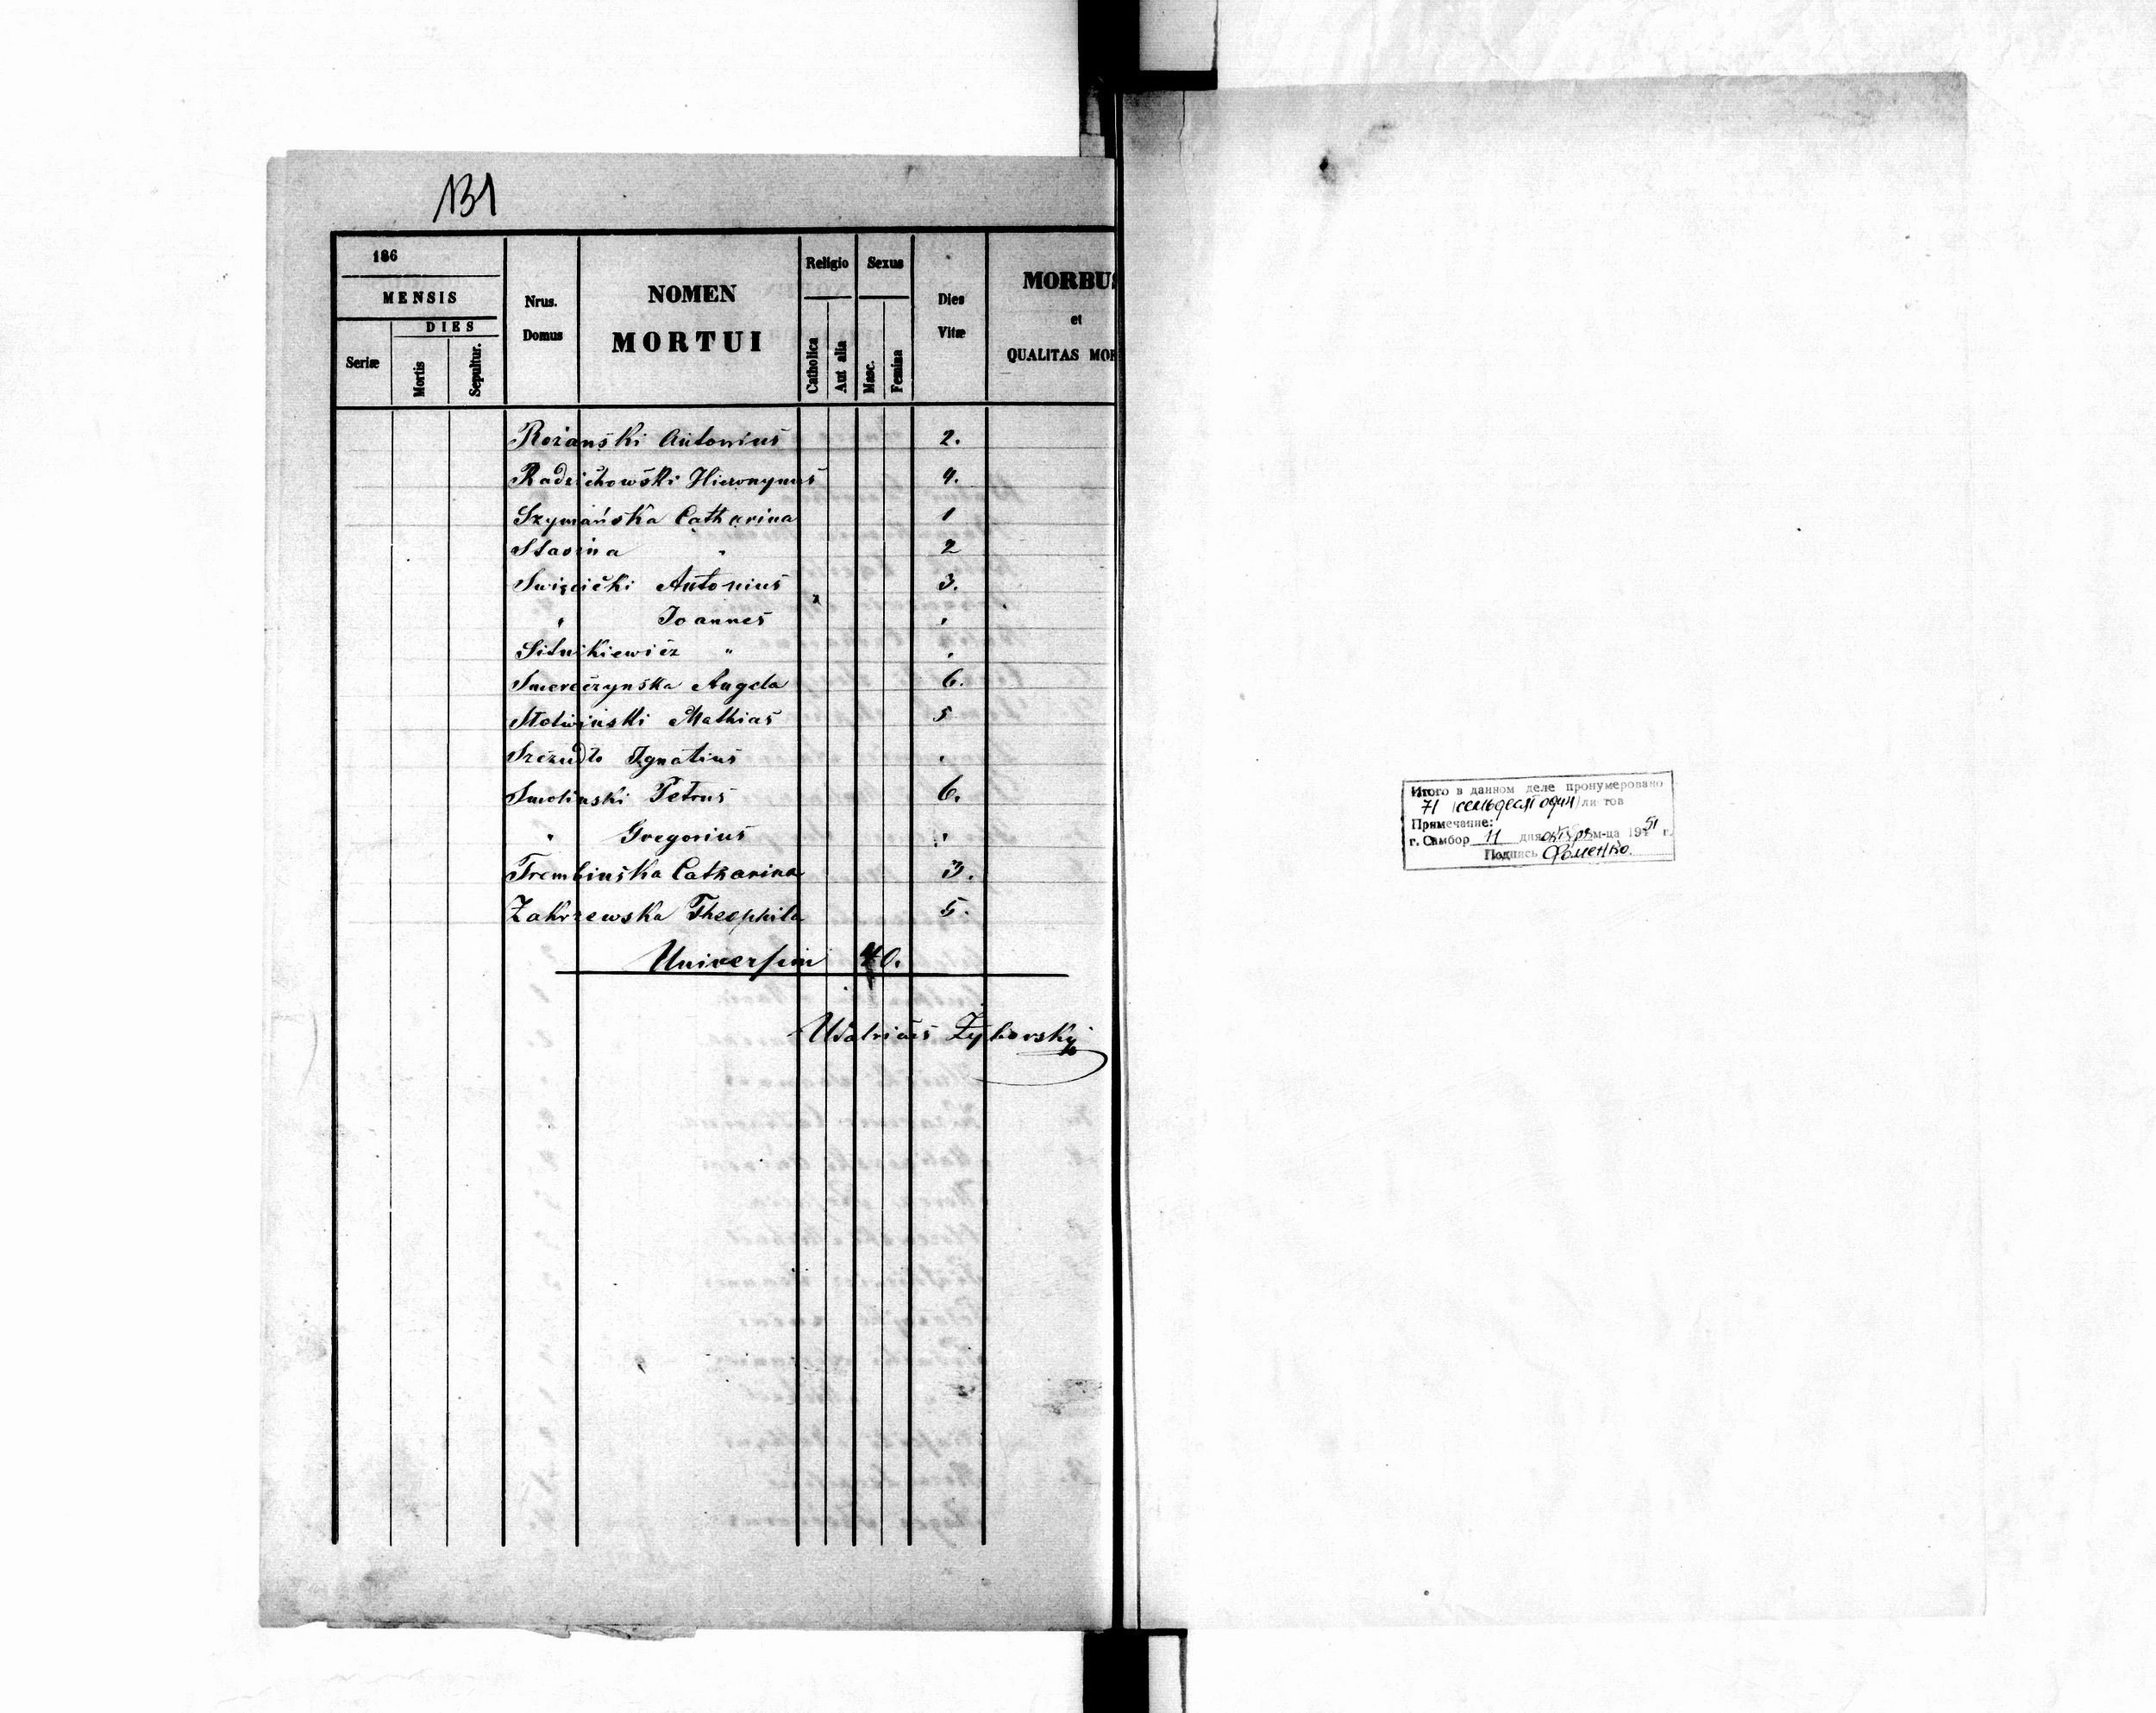 131
186
MENSIS
DIES
Seriæ
Mortis
Sepultur.
Nrus.
Domus
NOMEN
MORTUI
Religio
Catholica
Aut alia
Sexus
Masc.
Femina
Dies
Vitæ
MORBUS
et
QUALITAS MOR
Rozański Antonius 2.
Radzichowski Hieronymus 4.
Szymańska Catharina 1
Stasina " 2
Swięcicki Antonius 3.
" Joannes "
Sitnikiewicz " "
Smereczynska Angela 6.
Stotwinski Mathias 5
Szczudło Ignatius "
Smolinski Petrus 6.
" Gregorius "
Trembinska Catharina 3.
Zakrzewska Theophila 5.
Universim 40.
Udalricus Zyborski
Итого в данном деле пронумеровано
71 (семьдесят один) листов
Примечание:
г. Самбор 11 дня октября м-ца 1951 г.
Подпись Фоменко.